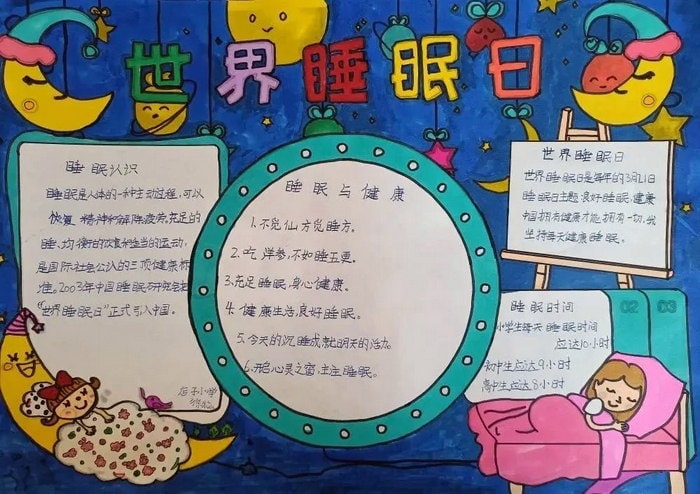 世界睡眠日
睡眠认识
睡眠是人体的一种主动过程,可以
恢复精神和解除疲劳,充足的
睡、均衡的饮食和适当的运动,
是国际社会公认的三项健康标
准。2003年中国睡眠研究会把
“世界睡眠日”正式引入中国。
店子小学
睡眠与健康
1.不觅仙方觅睡方。
2.吃洋参,不如睡五更。
3.充足睡眠,身心健康。
4.健康生活,良好睡眠。
5.今天的沉睡成就明天的活力。
6.开启心灵之窗,主主睡眠。
世界睡眠日
世界睡眠日是每年的3月21日
睡眠日主题:良好睡眠,健康
中国拥有健康才能拥有一切,
坚持每天健康睡眠。
睡眠时间
02 03
小学生每天睡眠时间
应达10小时
初中生应达9小时
高中生应达8小时